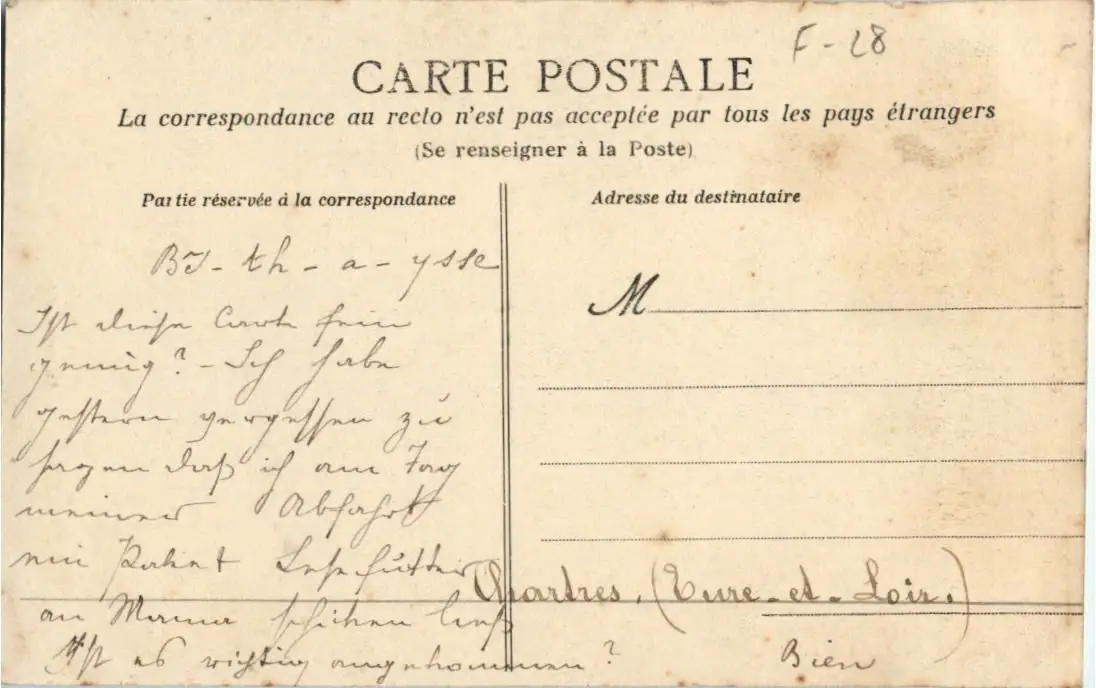 F-28
CARTE POSTALE
La correspondance au recto n'est pas acceptée par tous les pays étrangers
(Se renseigner à la Poste)
Partie réservée à la correspondance
Adresse du destinataire
M
BJ-th-a-ysse
Ist diese Carte fein
genug? - Ich habe
gestern vergessen zu
sagen daß ich am Tag
meiner Abfahrt
ein Paket Lesefutter
an Mama schicken ließ
Ist es richtig angekommen?
Chartres, (Eure-et-Loir.)
Bien